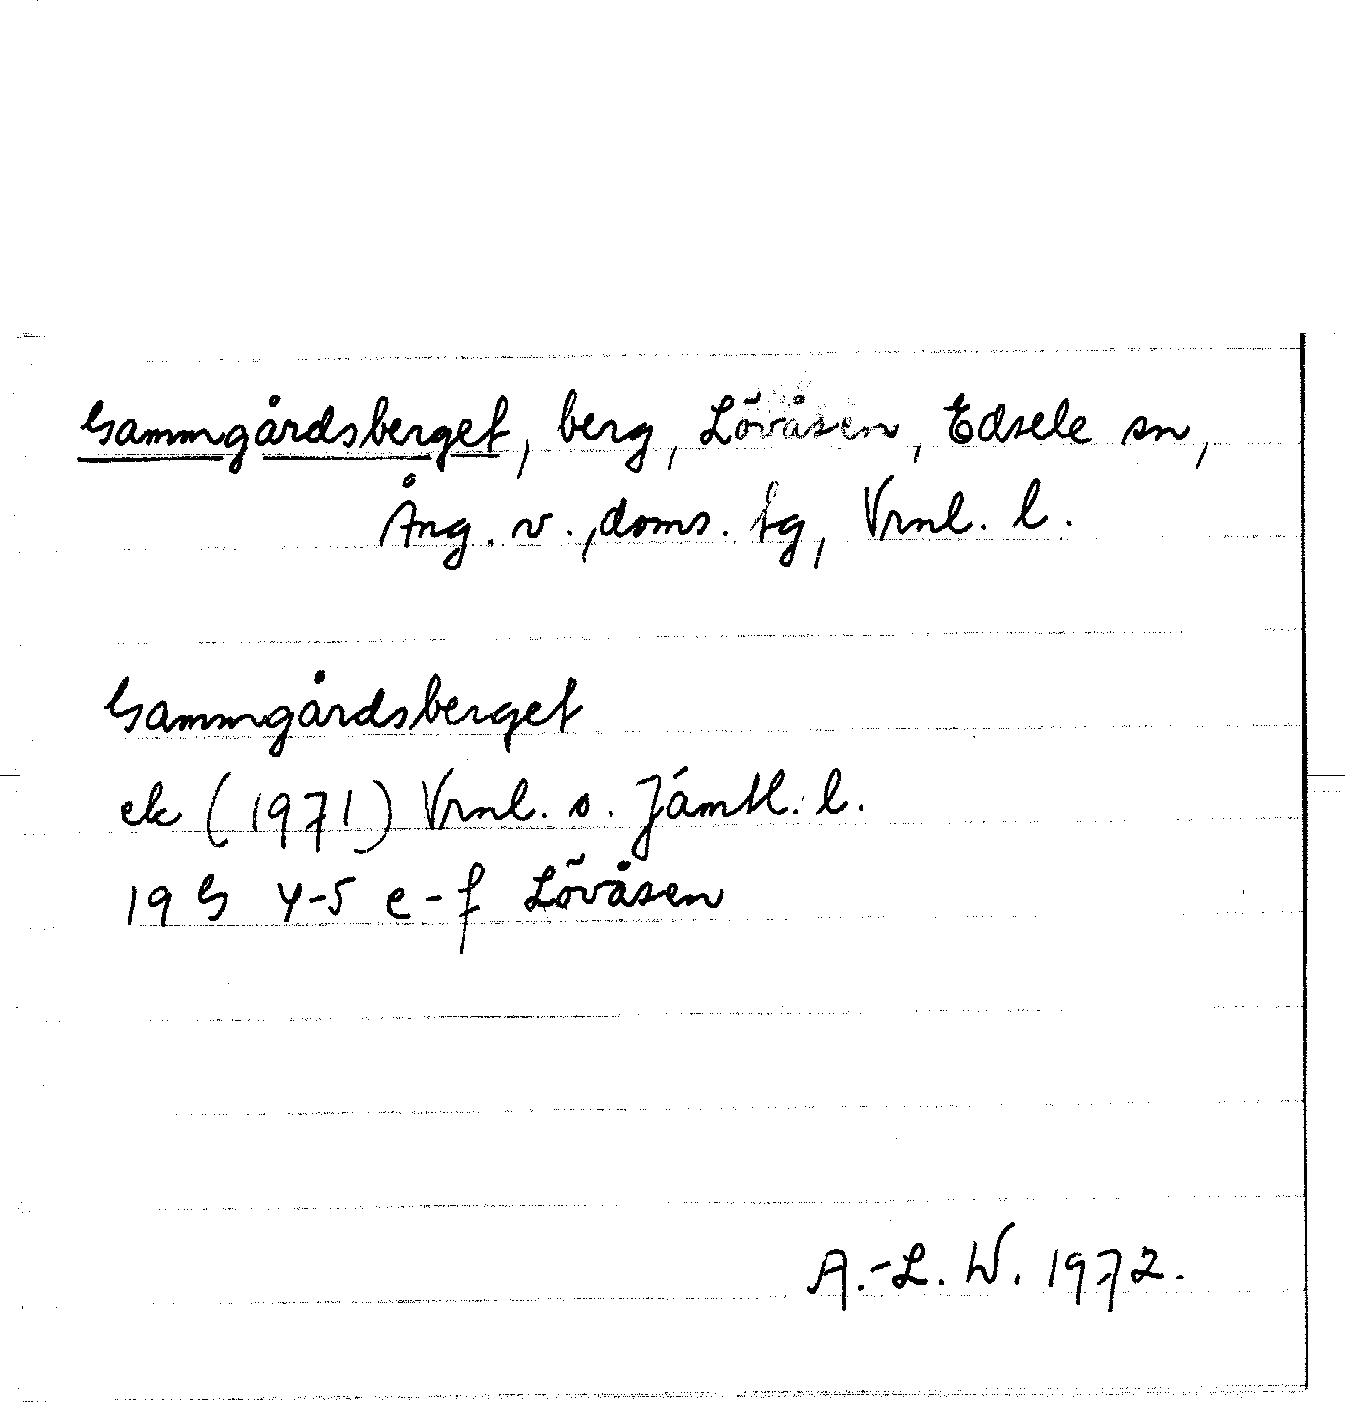 Gammgårdsberget, berg, Lövåsen, Edsele sn,
Ång. v., doms. tg, Vrnl. l.
Gammgårdsberget
ek (1971) Vrnl. o. Jämtl. l.
19 G 4-5 e-f Lövåsen
A.-L. W. 1972.